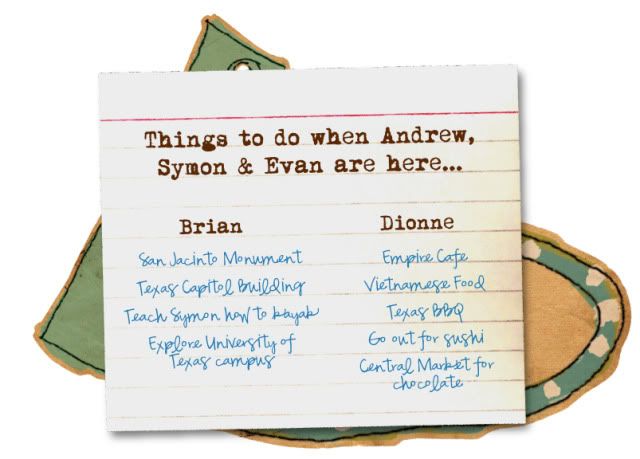 Things to do when Andrew,
Symon & Evan are here...
Brian
San Jacinto Monument
Texas Capitol Building
Teach Symon how to kayak
Explore University of
Texas campus
Dionne
Empire Cafe
Vietnamese Food
Texas BBQ
Go out for sushi
Central Market for
chocolate